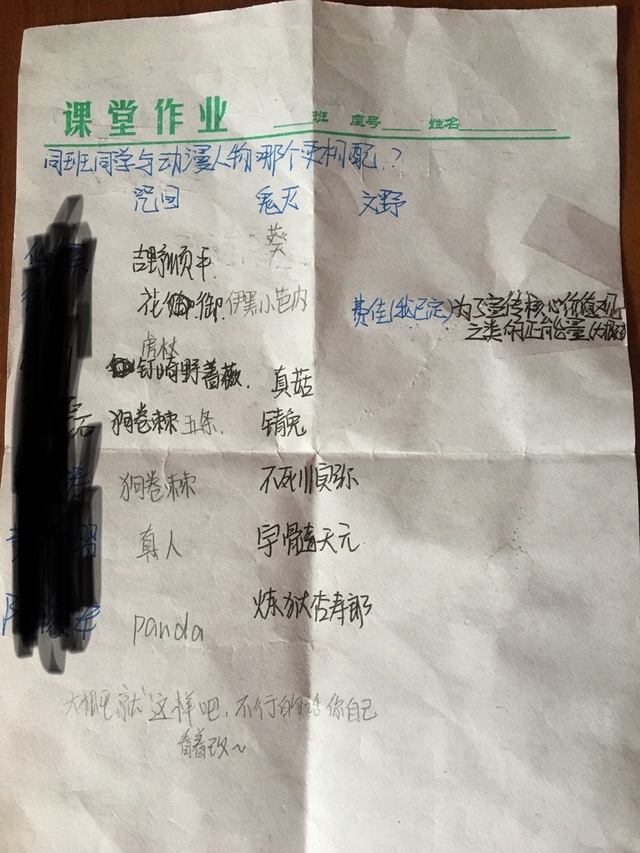 课堂作业 班 座号 姓名
同班同学与动漫人物哪个更相配？
咒回 鬼灭 文野
葵
吉野顺平
花御 伊黑小芭内
费佳(我已定)为了宣传核心价值观
之类的正能量(大概
虎杖
钉崎野蔷薇. 真菇
狗卷棘 五条. 锖兔
狗卷棘 不死川实弥
真人 宇髓天元
炼狱杏寿郎
panda
大概就这样吧，不行的话你自己
看着改~